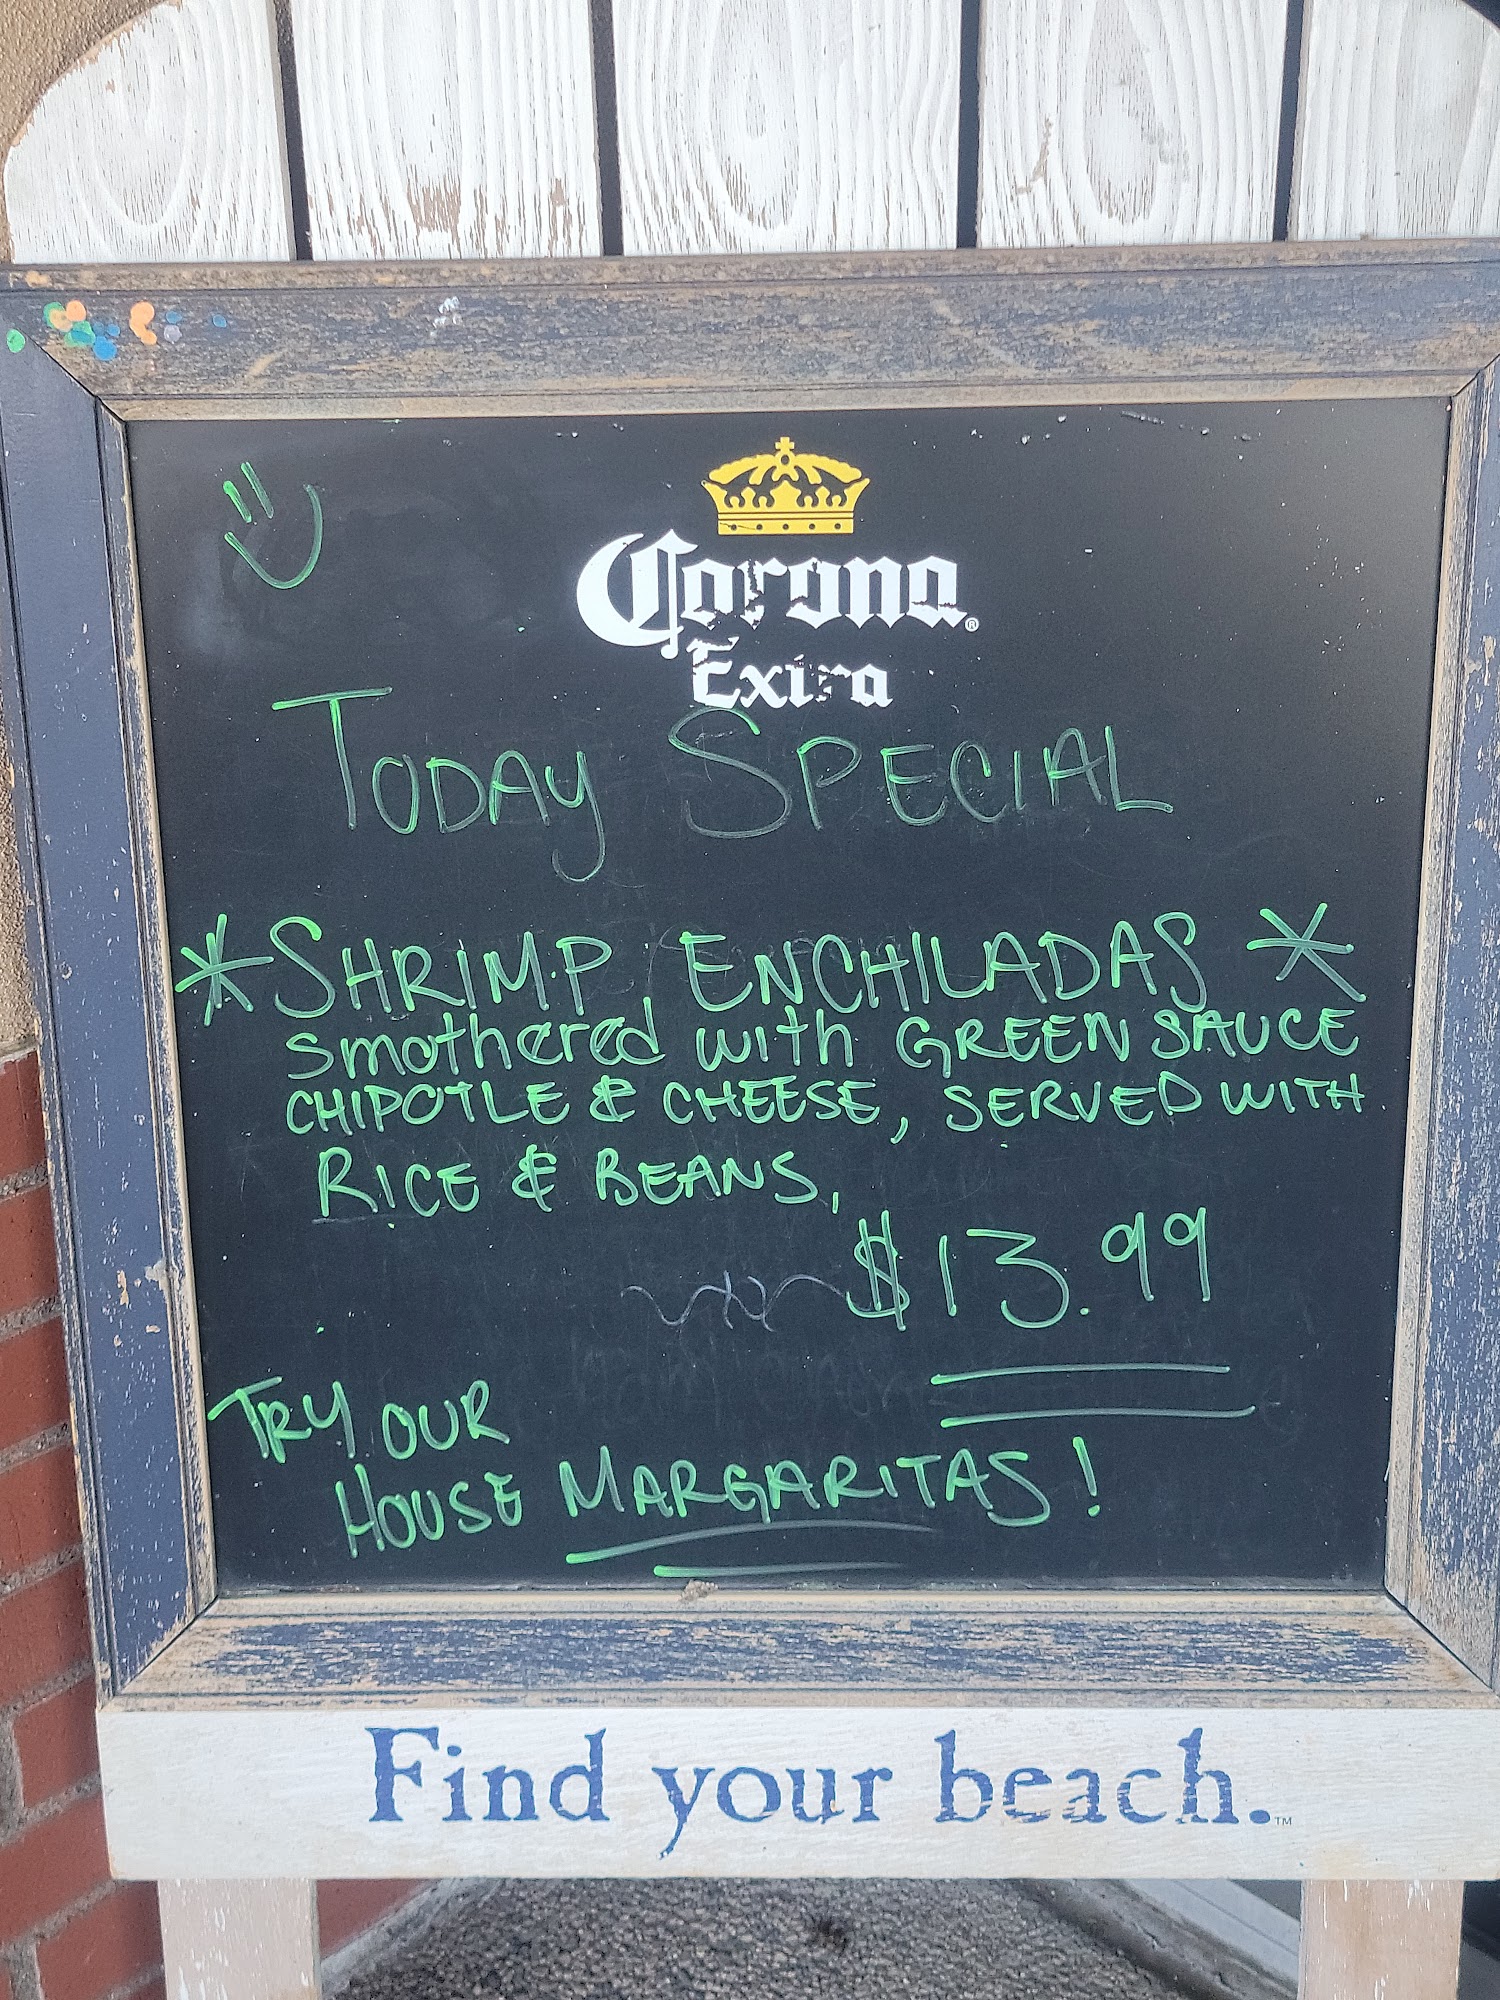 Corona®
Extra
TODAY SPECIAL
*SHRIMP ENCHILADAS *
smothered with GREEN SAUCE
CHIPOTLE & CHEESE, SERVED WITH
RICE & BEANS,
$13.99
TRY OUR
HOUSE MARGARITAS!
Find your beach.™